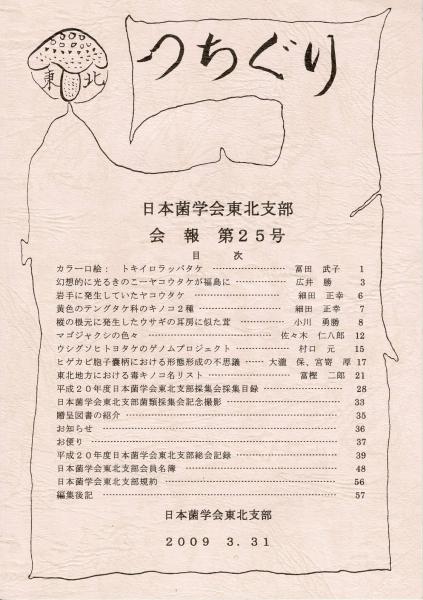 つちぐり
東北
日本菌学会東北支部
会報 第25号
目次
カラー口絵: トキイロラッパタケ ………… 富田 武子 1
幻想的に光るきのこーヤコウタケが福島に ………… 広井 勝 3
岩手に発生していたヤコウタケ ………… 細田 正幸 6
黄色のテングタケ科のキノコ2種 ………… 細田 正幸 7
樅の根元に発生したウサギの耳房に似た茸 ………… 小川 勇勝 8
マゴジャクシの色々 ………… 佐々木 仁八郎 12
ウシグソヒトヨタケのゲノムプロジェクト ………… 村口 元 15
ヒゲカビ胞子嚢柄における形態形成の不思議 …… 大瀧 保、宮嵜 厚 17
東北地方における毒キノコ名リスト ………… 富樫 二郎 21
平成20年度日本菌学会東北支部採集会採集目録 ………… 28
日本菌学会東北支部菌類採集会記念撮影 ………… 33
贈呈図書の紹介 ………… 35
お知らせ ………… 36
お便り ………… 37
平成20年度日本菌学会東北支部総会記録 ………… 39
日本菌学会東北支部会員名簿 ………… 48
日本菌学会東北支部規約 ………… 56
編集後記 ………… 57
日本菌学会東北支部
2009 3.31